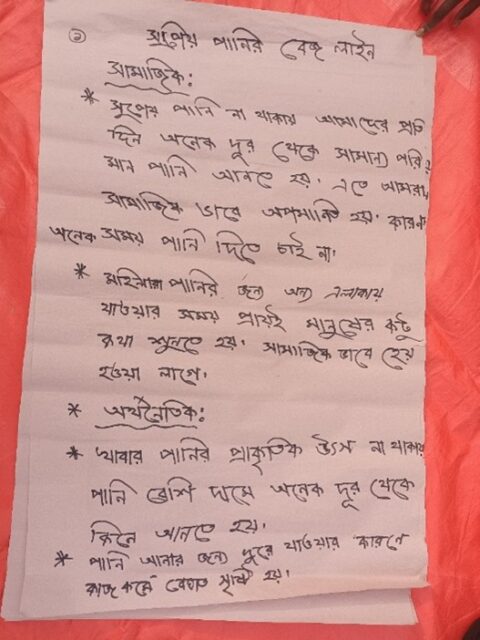 ২ সুপেয় পানির বেজ লাইন
সামাজিক:
* সুপেয় পানি না থাকায় আমাদের প্রতি
দিন অনেক দূর থেকে সামান্য পরি
মান পানি আনতে হয়। এতে আমরা
সামাজিক ভাবে অপমানিত হয়। কারন
অনেক সময় পানি দিতে চাই না।
* মহিলারা পানির জন্য অন্য এলাকায়
যাওয়ার সময় প্রায়ই মানুষের কটু
কথা শুনতে হয়। সামাজিক ভাবে হেয়
হওয়া লাগে।
* অর্থনৈতিক:
* খাবার পানির প্রাকৃতিক উৎস না থাকায়
পানি বেশি দামে অনেক দূর থেকে
কিনে আনতে হয়।
* পানি আনার জন্য দূরে যাওয়ার কারণে
কাজ কর্মে ব্যেঘাত সৃষ্টি হয়।